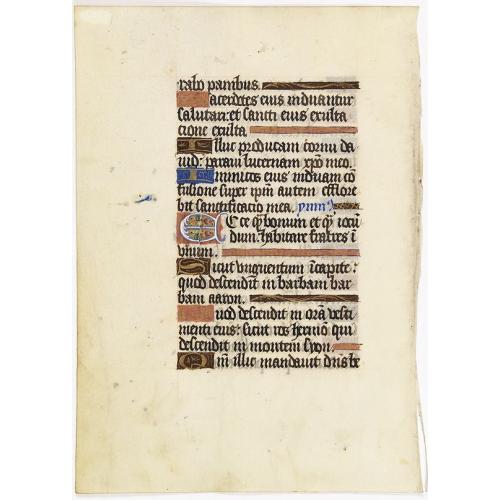 rabo panibus.
Sacerdotes eius induantur
salutari: et sancti eius exulta
cione exulta
Illuc producam cornu da
uid: paraui lucernam xpo meo.
Inimicos eius induam cō
fusione super ipm autem efflore
bit sanctificacio mea. psalm9
Ecce q̄ bonum et q̄ iocū
dum: habitare fratres ī
unum.
Sicut unguentum ī capite:
quod descendit in barbam bar
bam aaron.
Quod descendit in orā vesti
menti eius: sicut ros hermō qui
descendit in montem syon.
Qm̄ illic mandauit dn̄s be